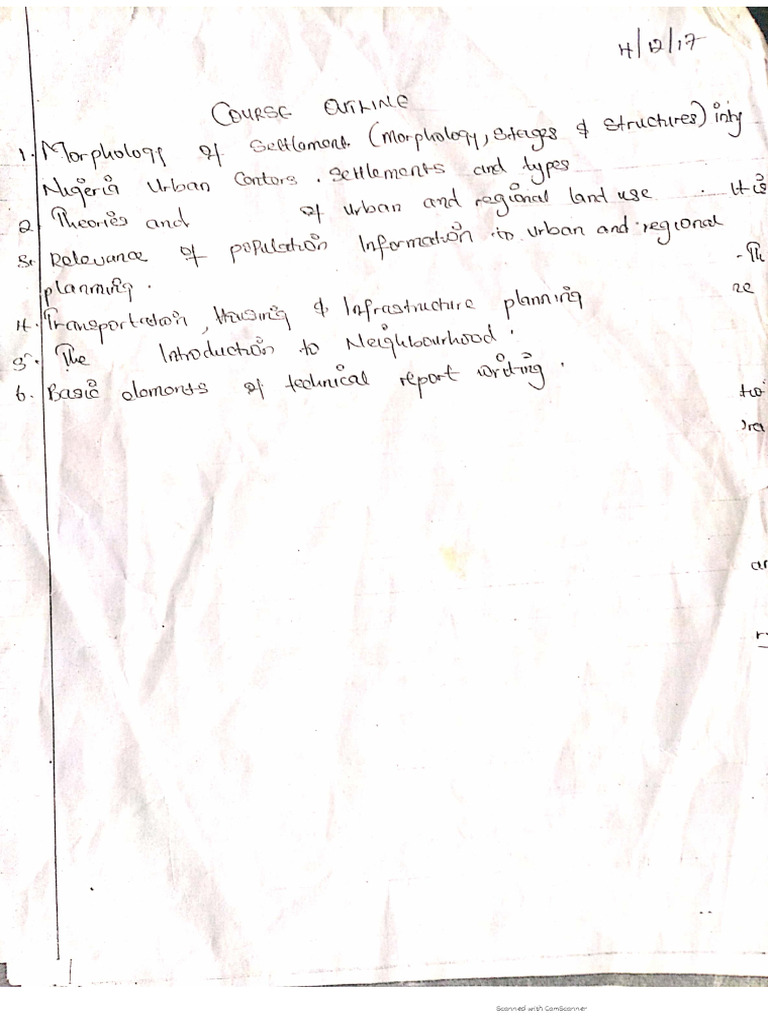 4/12/17
COURSE OUTLINE
1. Morphology of Settlement (Morphology, Stages & Structures) into
Nigeria Urban Centers. Settlements and types
2 Theories and of urban and regional land use. It is
3. Relevance of population Information in urban and regional
planning.
- Th
4. Transportation, Housing & Infrastructure planning
re
5. The Introduction to Neighbourhood.
6. Basic elements of technical report writing.
two
ar
Scanned with CamScanner